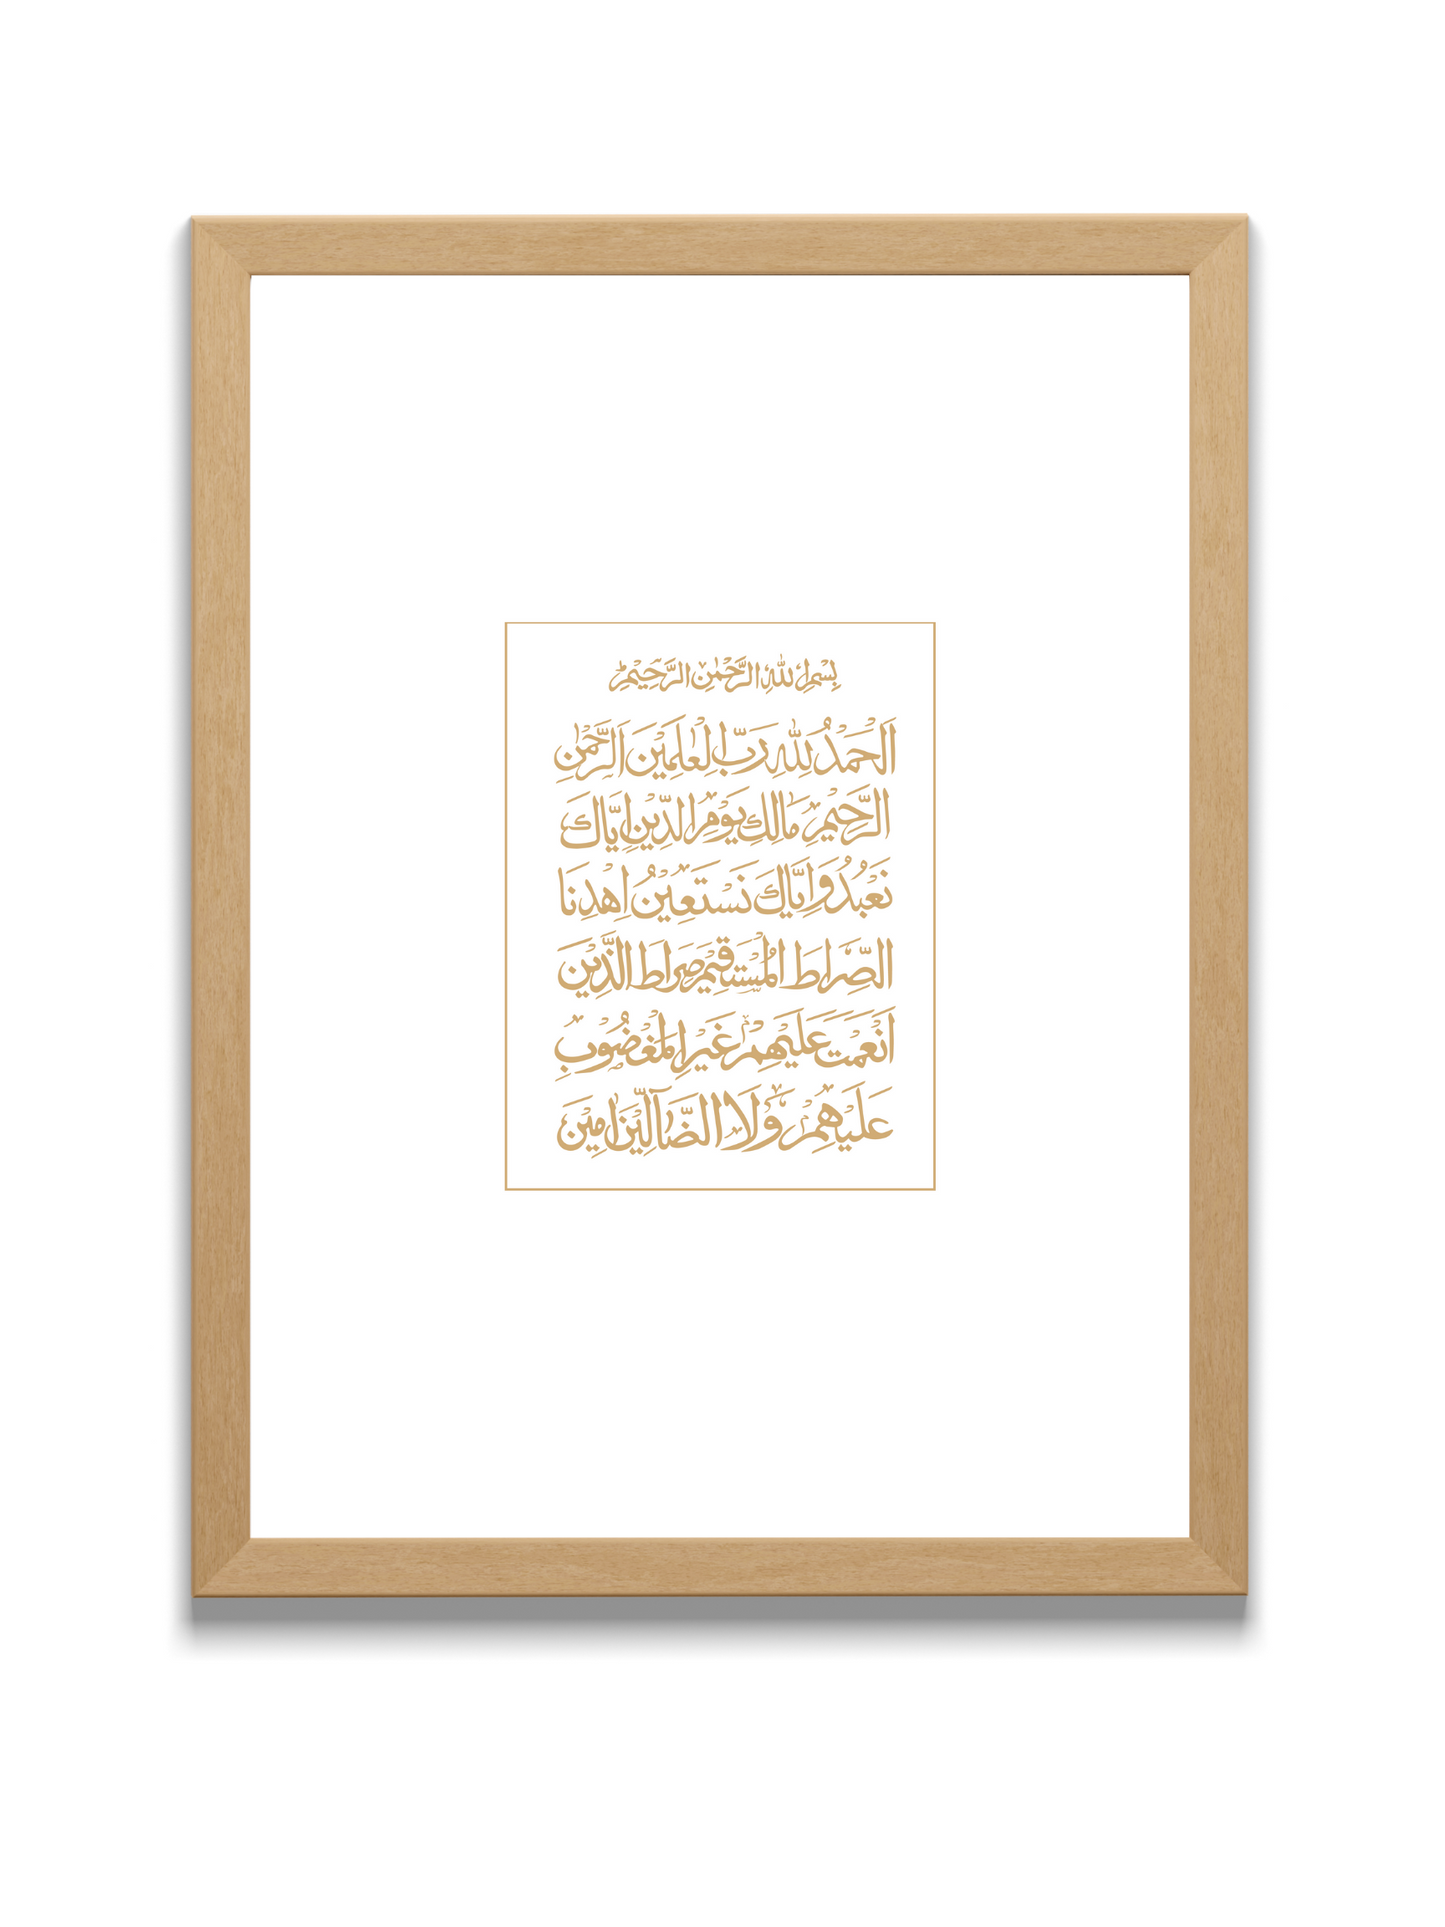 بِسْمِ اللهِ الرَّحْمٰنِ الرَّحِيْمِ
اَلْحَمْدُ لِلّٰهِ رَبِّ الْعٰلَمِيْنَ اَلرَّحْمٰنِ
الرَّحِيْمِ مَالِكِ يَوْمِ الدِّيْنِ اِيَّاكَ
نَعْبُدُ وَاِيَّاكَ نَسْتَعِيْنُ اِهْدِنَا
الصِّرَاطَ الْمُسْتَقِيْمَ صِرَاطَ الَّذِيْنَ
اَنْعَمْتَ عَلَيْهِمْ غَيْرِ الْمَغْضُوْبِ
عَلَيْهِمْ وَلَا الضَّآلِّيْنَ اٰمِيْنَ